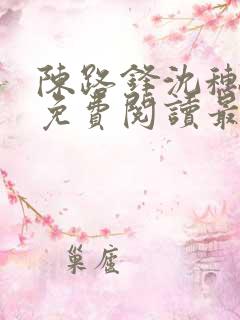 陳路鋒沈穗
免費閱讀最
巢座